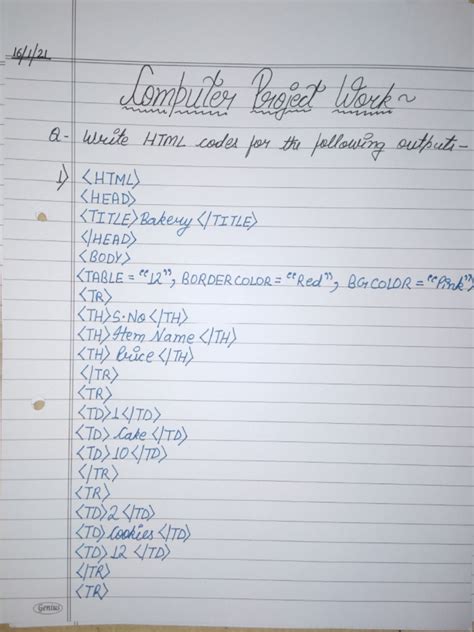 16/1/21
Computer Project Work~
Q- Write HTML codes for the following outputs-
1) <HTML>
<HEAD>
<TITLE>Bakery </TITLE>
</HEAD>
<BODY>
<TABLE = "12", BORDERCOLOR = "Red", BGCOLOR = "Pink">
<TR>
<TH>S.NO</TH>
<TH>Item Name </TH>
<TH>Price </TH>
</TR>
<TR>
<TD>1</TD>
<TD>Cake </TD>
<TD>10</TD>
</TR>
<TR>
<TD>2 </TD>
<TD>Cookies </TD>
<TD>12 </TD>
</TR>
<TR>
Genius